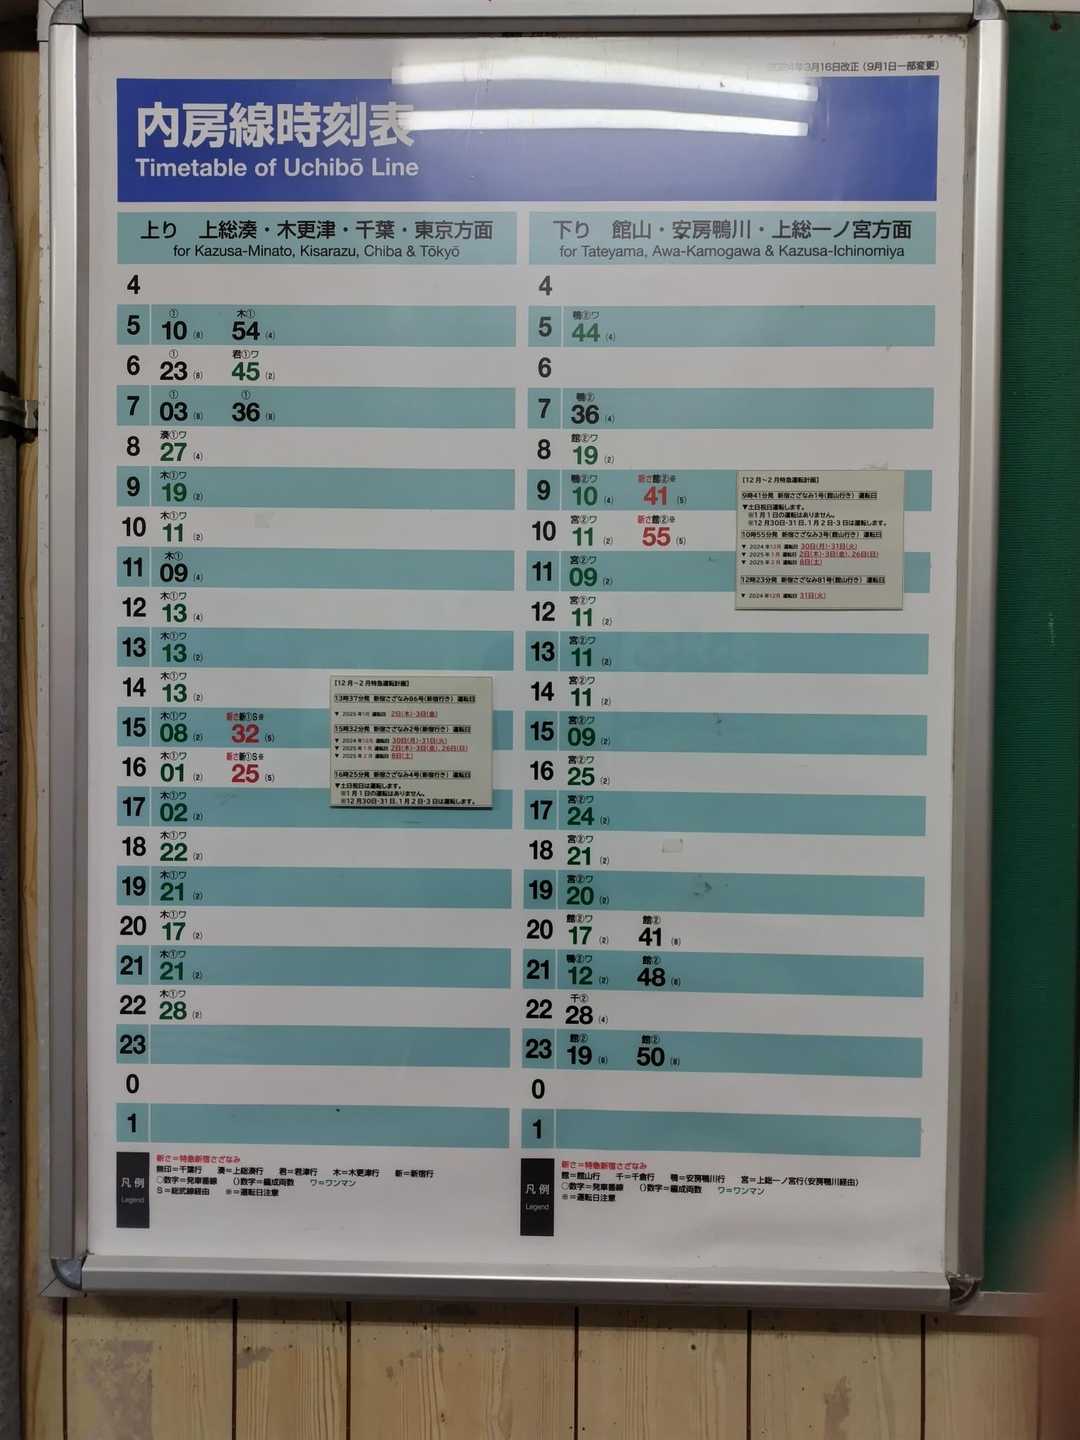 2024年3月16日改正（9月1日一部変更）
内房線時刻表
Timetable of Uchibō Line
上り　上総湊・木更津・千葉・東京方面
for Kazusa-Minato, Kisarazu, Chiba & Tōkyō
4
5 ② 10 (8) 木① 54 (4)
6 ① 23 (8) 君①ワ 45 (2)
7 ① 03 (8) ① 36 (8)
8 湊①ワ 27 (4)
9 木①ワ 19 (2)
10 木①ワ 11 (2)
11 木① 09 (4)
12 木①ワ 13 (4)
13 木①ワ 13 (2)
14 木①ワ 13 (2)
15 木①ワ 08 (2) 新さ新①S※ 32 (5)
16 木①ワ 01 (2) 新さ新①S※ 25 (5)
17 木①ワ 02 (2)
18 木①ワ 22 (2)
19 木①ワ 21 (2)
20 木①ワ 17 (2)
21 木①ワ 21 (2)
22 木①ワ 28 (2)
23
0
1
【12月～2月特急運転計画】
13時37分発 新宿さざなみ86号(新宿行き) 運転日
▼ 2025年1月 運転日 2日(木)・3日(金)
15時32分発 新宿さざなみ2号(新宿行き) 運転日
▼ 2024年12月 運転日 30日(月)・31日(火)
▼ 2025年1月 運転日 2日(木)・3日(金)、26日(日)
▼ 2025年2月 運転日 8日(土)
16時25分発 新宿さざなみ4号(新宿行き) 運転日
▼土日祝日は運転します。
※1月1日の運転はありません。
※12月30日・31日、1月2日・3日は運転します。
凡例
Legend
新さ＝特急新宿さざなみ
無印＝千葉行　湊＝上総湊行　君＝君津行　木＝木更津行　新＝新宿行
○数字＝発車番線　()数字＝編成両数　ワ＝ワンマン
S＝総武線経由　※＝運転日注意
下り　館山・安房鴨川・上総一ノ宮方面
for Tateyama, Awa-Kamogawa & Kazusa-Ichinomiya
4
5 鴨②ワ 44 (4)
6
7 鴨② 36 (4)
8 館②ワ 19 (2)
9 鴨②ワ 10 (4) 新さ館②※ 41 (5)
10 宮②ワ 11 (2) 新さ館②※ 55 (5)
11 宮②ワ 09 (2)
12 宮②ワ 11 (2)
13 宮②ワ 11 (2)
14 宮②ワ 11 (2)
15 宮②ワ 09 (2)
16 宮②ワ 25 (2)
17 宮②ワ 24 (2)
18 宮②ワ 21 (2)
19 宮②ワ 20 (2)
20 館②ワ 17 (2) 館② 41 (8)
21 鴨②ワ 12 (2) 館② 48 (6)
22 千② 28 (4)
23 館② 19 (6) 館② 50 (8)
0
1
【12月～2月特急運転計画】
9時41分発 新宿さざなみ1号(館山行き) 運転日
▼土日祝日運転します。
※1月1日の運転はありません。
※12月30日・31日、1月2日・3日は運転します。
10時55分発 新宿さざなみ3号(館山行き) 運転日
▼ 2024年12月 運転日 30日(月)・31日(火)
▼ 2025年1月 運転日 2日(木)・3日(金)、26日(日)
▼ 2025年2月 運転日 8日(土)
12時23分発 新宿さざなみ81号(館山行き) 運転日
▼ 2024年12月 運転日 31日(火)
凡例
Legend
新さ＝特急新宿さざなみ
館＝館山行　千＝千倉行　鴨＝安房鴨川行　宮＝上総一ノ宮行(安房鴨川経由)
○数字＝発車番線　()数字＝編成両数　ワ＝ワンマン
※＝運転日注意